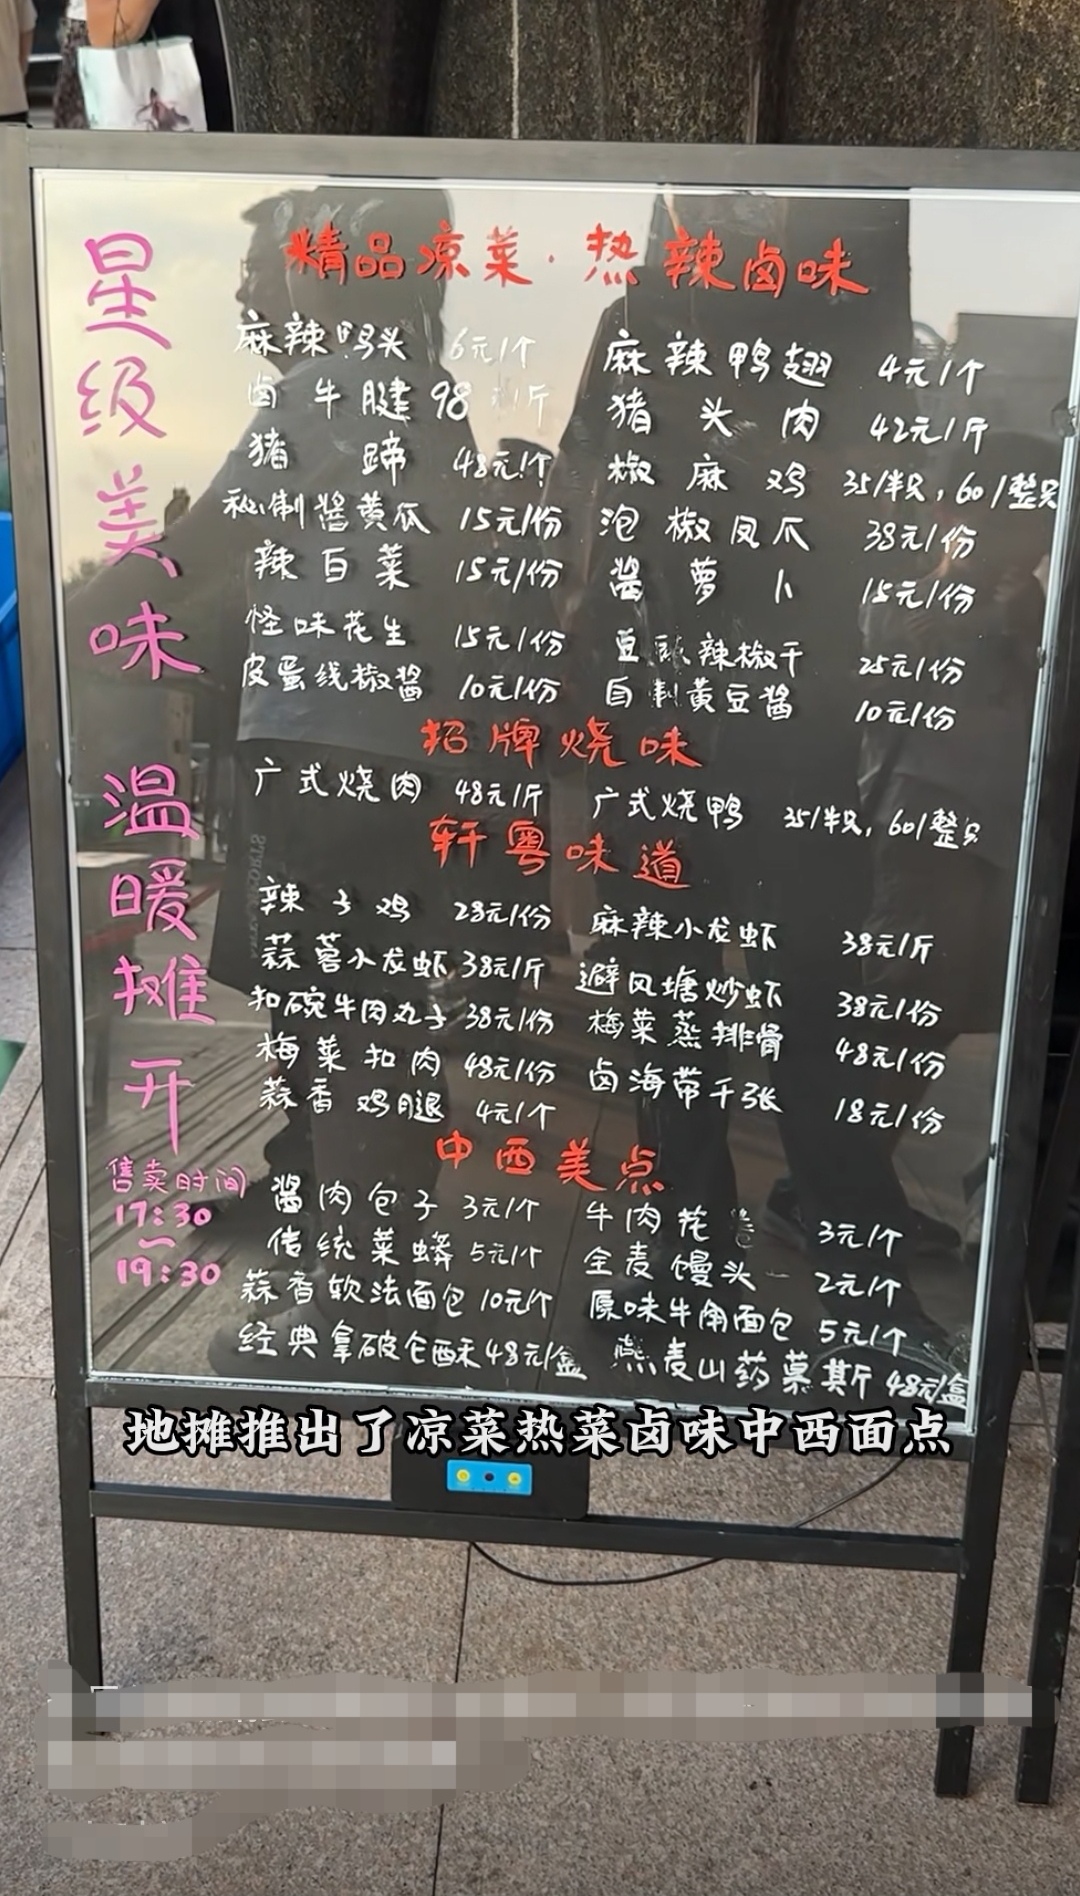 星级美味 温暖摊开
售卖时间
17:30
~
19:30
精品凉菜·热辣卤味
麻辣鸭头 6元/个 麻辣鸭翅 4元/个
卤牛腱 98 /斤 猪头肉 42元/斤
猪蹄 48元/个 椒麻鸡 35/半只,60/整只
私制酱黄瓜 15元/份 泡椒凤爪 38元/份
辣白菜 15元/份 酱萝卜 15元/份
怪味花生 15元/份 豆豉辣椒干 25元/份
皮蛋线椒酱 10元/份 自制黄豆酱 10元/份
招牌烧味
广式烧肉 48元/斤 广式烧鸭 35/半只,60/整只
轩粤味道
辣子鸡 28元/份 麻辣小龙虾 38元/斤
蒜蓉小龙虾 38元/斤 避风塘炒虾 38元/份
扣碗牛肉丸子 38元/份 梅菜蒸排骨 48元/份
梅菜扣肉 48元/份 卤海带千张 18元/份
蒜香鸡腿 4元/个
中西美点
酱肉包子 3元/个 牛肉花卷 3元/个
传统菜蟒 5元/个 全麦馒头 2元/个
蒜香软法面包 10元/个 原味牛角面包 5元/个
经典拿破仑酥 48元/盒 燕麦山药慕斯 48元/盒
地摊推出了凉菜热菜卤味中西面点